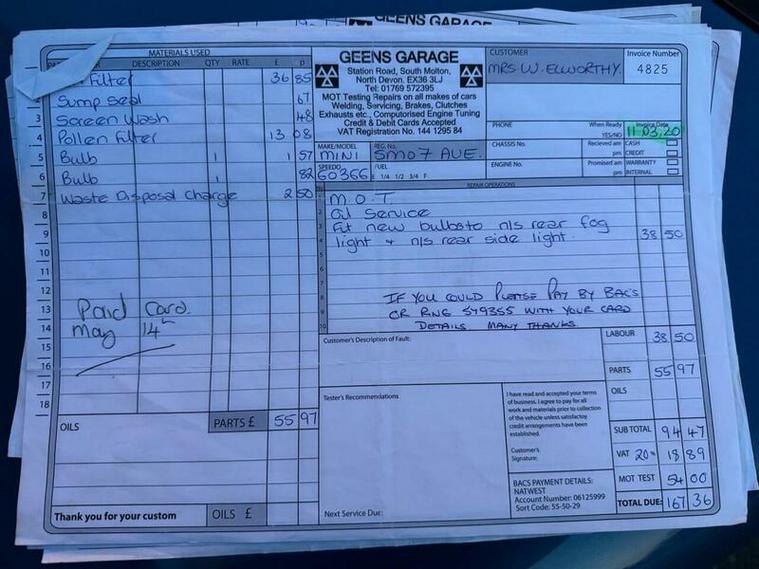 GEENS GARAGE
MATERIALS USED
DESCRIPTION QTY RATE £ P
Filter 36 85
2 Sump Seal 67
3 Screen Wash 48
4 Pollen Filter 13 08
5 Bulb 1 1 57
6 Bulb 1 82
7 Waste Disposal Charge 2 50
8
9
10
11
12
13 Paid Card.
14 May 14th
15
16
17
18
OILS PARTS £ 55 97
Thank you for your custom OILS £
GEENS GARAGE
Station Road, South Molton,
North Devon. EX36 3LJ
Tel: 01769 572395
MOT Testing Repairs on all makes of cars
Welding, Servicing, Brakes, Clutches
Exhausts etc., Computorised Engine Tuning
Credit & Debit Cards Accepted
VAT Registration No. 144 1295 84
CUSTOMER
MRS W. ELWORTHY.
Invoice Number
4825
PHONE When Ready YES/NO Invoice Date 11.03.20
MAKE/MODEL MINI REG. No. SM07 AUE.
CHASSIS No. Recieved am pm CASH CREDIT
SPEEDO 60366 FUEL E 1/4 1/2 3/4 F
ENGINE No. Promised am pm WARRANTY INTERNAL
REPAIR OPERATIONS
1 M.O.T
2 Oil Service
3 Fit new bulbs to n/s rear fog
4 light + n/s rear side light. 38 50
5
6
7
8 IF YOU COULD PLEASE PAY BY BACS
9 OR RING 579355 WITH YOUR CARD
10 DETAILS MANY THANKS
Customer's Description of Fault:
LABOUR 38 50
PARTS 55 97
Tester's Recommendations
I have read and accepted your terms
of business. I agree to pay for all
work and materials prior to collection
of the vehicle unless satisfactory
credit arrangements have been
established.
Customer's
Signature:
OILS
SUB TOTAL 94 47
VAT 20% 18 89
MOT TEST 54 00
TOTAL DUE: 167 36
BACS PAYMENT DETAILS:
NATWEST
Account Number: 06125999
Sort Code: 55-50-29
Next Service Due: